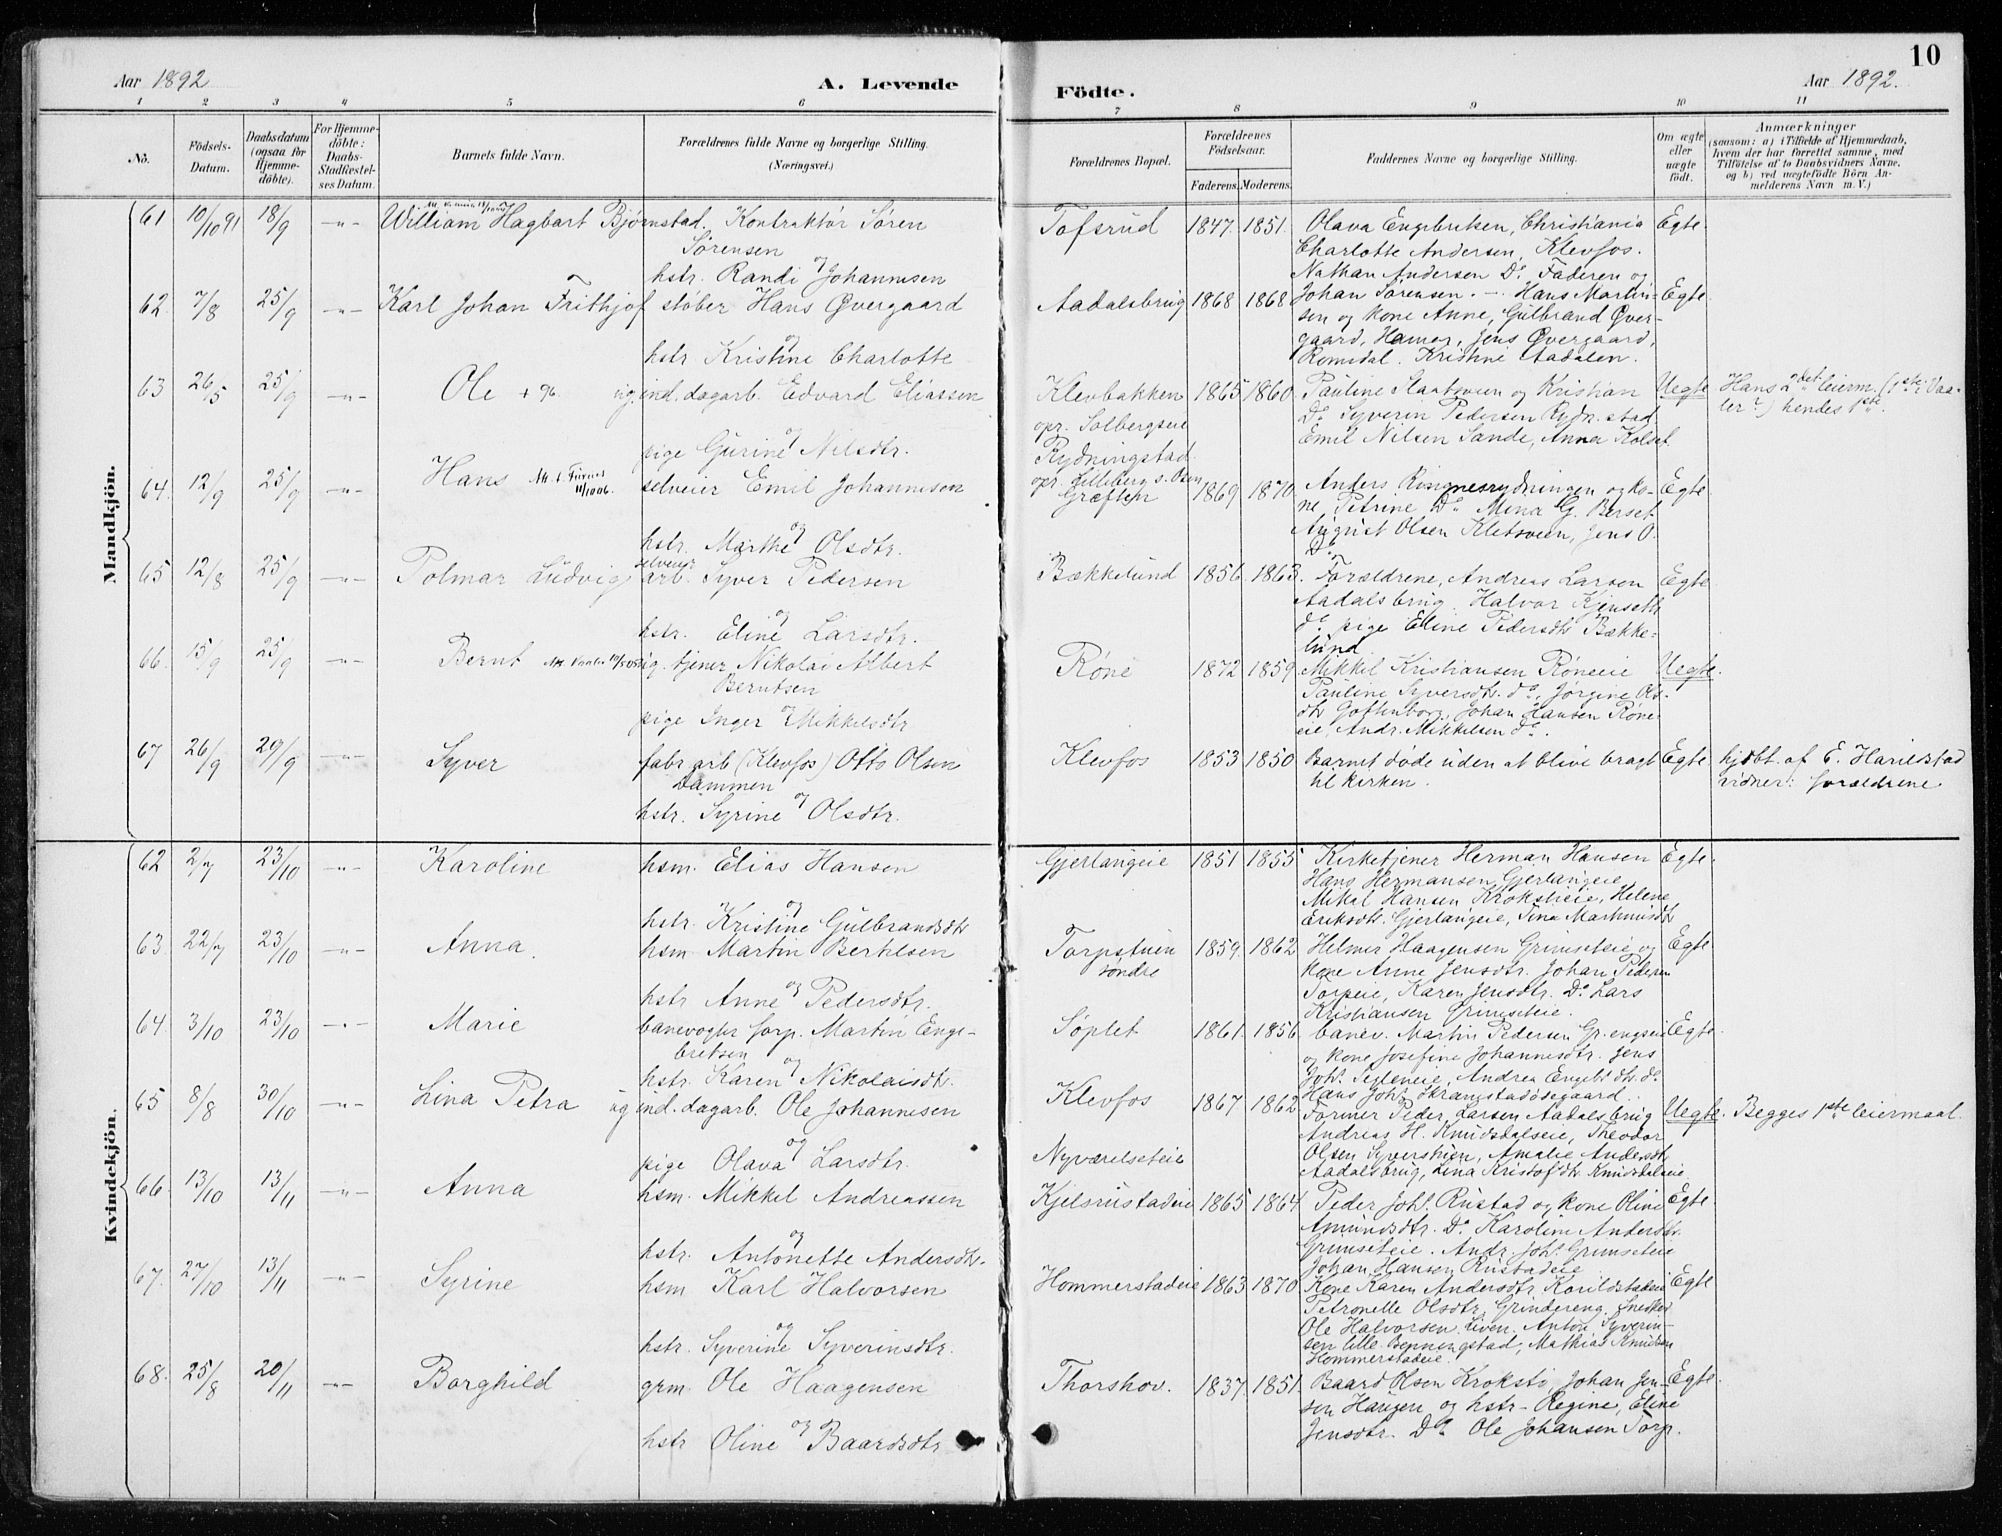 10
Aar 1892
A. Levende
Födte.
Aar 1892.
1 2 3 4 5 6 7 8 9 10 11
No.
Födsels-Datum.
Daabsdatum (ogsaa for Hjemme-döbte).
For Hjemme-döbte: Daabs-Stadfæstel-ses Datum.
Barnets fulde Navn.
Forældrenes fulde Navne og borgerlige Stilling.
(Næringsvei.)
Forældrenes Bopæl.
Forældrenes Födselsaar.
Faderens. Moderens.
Faddernes Navne og borgerlige Stilling.
Om ægte eller uægte födt.
Anmærkninger
(saasom: a) i Tilfælde af Hjemmedaab,
hvem der har forrettet samme, med
Tilföielse af to Daabsvidners Navne,
og b) ved uægtefödte Börn An-
melderens Navn m. V.)
Mandkjön.
61 10/10 91 18/9 -"- William Hagbart Bjørnstad. Kontraktør Søren
Sørensen
og
hstr. Randi Johannesen
Tofsrud 1847. 1851. Olava Engebretsen, Christiania Egte.
Charlotte Andersen, Klevfos.
Nathan Andersen Do Faderen og
Johan Sørensen.
62. 7/8 25/9 -"- Karl Johan Frithjof støber Hans Øvergaard
og
hstr. Kristine Charlotte
Aadalsbrug 1868 1868 Hans Martin- Egte.
sen og kone Anne, Gulbrand Øver-
gaard, Hamar, Jens Øvergaard,
Romedal. Kristine Aadalen.
63 26/5 25/9 -"- Ole + 96. ug. ind. dagarb. Edvard Eliassen
og
pige Gurine Nilsdtr.
Klevbakken 1865 1860
opr. Solbergseie
Rydningstad
opr. Lilleberg s. Osen
Pauline Staatsveen og Kristian Uegte
Do Syverin Pedersen Rydn.stad
Emil Nilsen Sande, Anna Kolset
Hans 2det leierm. (1ste i Vaa-
ler?) hendes 1ste.
64. 12/9 25/9 -"- Hans Att. t. Furnes 11/10 06. selveier Emil Johannesen
og
hstr. Marthe Olsdtr.
Græften 1869 1870 Anders Ringnesrydningen og ko- Egte
ne Petrine Do Mina G. Berset
August Olsen Kletsveen, Jens O.
Do
65 12/8 25/9 -"- Polmar Ludvig selveier arb. Syver Pedersen
og
hstr. Eline Larsdtr.
Bækkelund 1856 1863. Forældrene, Andreas Larsen Egte
Aadalsbrug. Halvor Kjenseth
do. pige Eline Pedersdtr Bække-
lund.
66. 15/9 25/9 -"- Bernt ug. tjener Nikolai Albert
Berntsen
og
pige Inger Mikkelsdtr
Røne 1872 1859 Mikkel Kristiansen Røneeie Uegte.
Pauline Syversdtr. do., Jørgine Ols-
dtr Goftenborg, Johan Hansen Røne-
eie, Andr. Mikkelsen do.
67 26/9 29/9 -"- Syver fabr arb (Klevfos) Otto Olsen
Dammen
og
hstr. Syrine Olsdtr.
Klevfos 1853 1850 Barnet døde uden at blive bragt Egte
til kirken.
hjdbt. af E. Harildstad
vidner: forældrene
Kvindekjön.
62 2/7 23/10 -"- Karoline hsm. Elias Hansen
og
hstr. Kristine Gulbrandsdtr
Gjerlangeie 1851 1855 Kirketjener Herman Hansen Egte.
Hans Hermansen Gjerlangeie
Mikal Hansen Kroksticie, Helene
Eriksdtr. Gjerlangeie, Tina
63. 22/7 23/10 -"- Anna. hsm Martin Berthelsen
og
hstr Anne Pedersdtr.
Torpstuen 1859. 1862
søndre
Helmer Haagensen Grimseteie og Egte
kone Anne Jensdtr. Johan Pedersen
Torpeie, Karen Jensdtr. Do Lars
Kristiansen Grimseteie.
64 3/10 23/10 -"- Marie banevogter forp. Martin Enge-
bretsen
og
hstr. Karen Nikolaisdtr.
Søplet 1861. 1856 banev. Martin Pedersen Gr.engseie Egte.
og kone Josefine Johannesdtr. Jens
Johs. Andrea Engebr.dtr. do
Hans Johs. Skrangstadøsegaard.
65 8/8 30/10 -"- Lina Petra ug ind. dagarb. Ole Johannesen
og
pige Olava Larsdtr.
Klevfos 1867 1862
Nyværelseteie
Former Peder Larsen Aadalsbrug Uegte. Begges 1ste leiermaal.
Andreas H. Knudsdalseie, Theodor
Olsen Syverstuen, Amalie Andersdtr
Aadalsbrug, Lina Kristofdtr Knudsdalseie
66. 13/10 13/11 -"- Anna hsm. Mikkel Andreassen
og
hstr. Antonette Andersdtr.
Kjelsrustadeie 1865 1864 Peder Johs. Rustad og kone Oline Egte.
Amundsdtr. Do Karoline Andersdtr.
Grimseteie. Andr. Johs. Grimseteie
Johan Hansen Rustadeie
67. 27/10 13/11 -"- Syrine hsm Karl Halvorsen
og
hstr. Syverine Syverinsdtr.
Hommerstadeie 1863 1870. Kone Karen Andersdtr. Karildstadeie Egte
Petronelle Olsdtr. Grindereng. Snedker
Ole Halvorsen Liven. Anton Syverin-
sen lille Bepningstad, Mathias Knudsen
Hommerstadeie.
68. 25/8 20/11 -"- Borghild grm. Ole Haagensen
og
hstr Oline Baardsdtr.
Thorshov. 1837 1851. Baard Olsen Kroksti, Johan Jen- Egte.
sen Haugen og hstr- Regine, Eline
Jensdtr. Do Ole Johansen Torp.